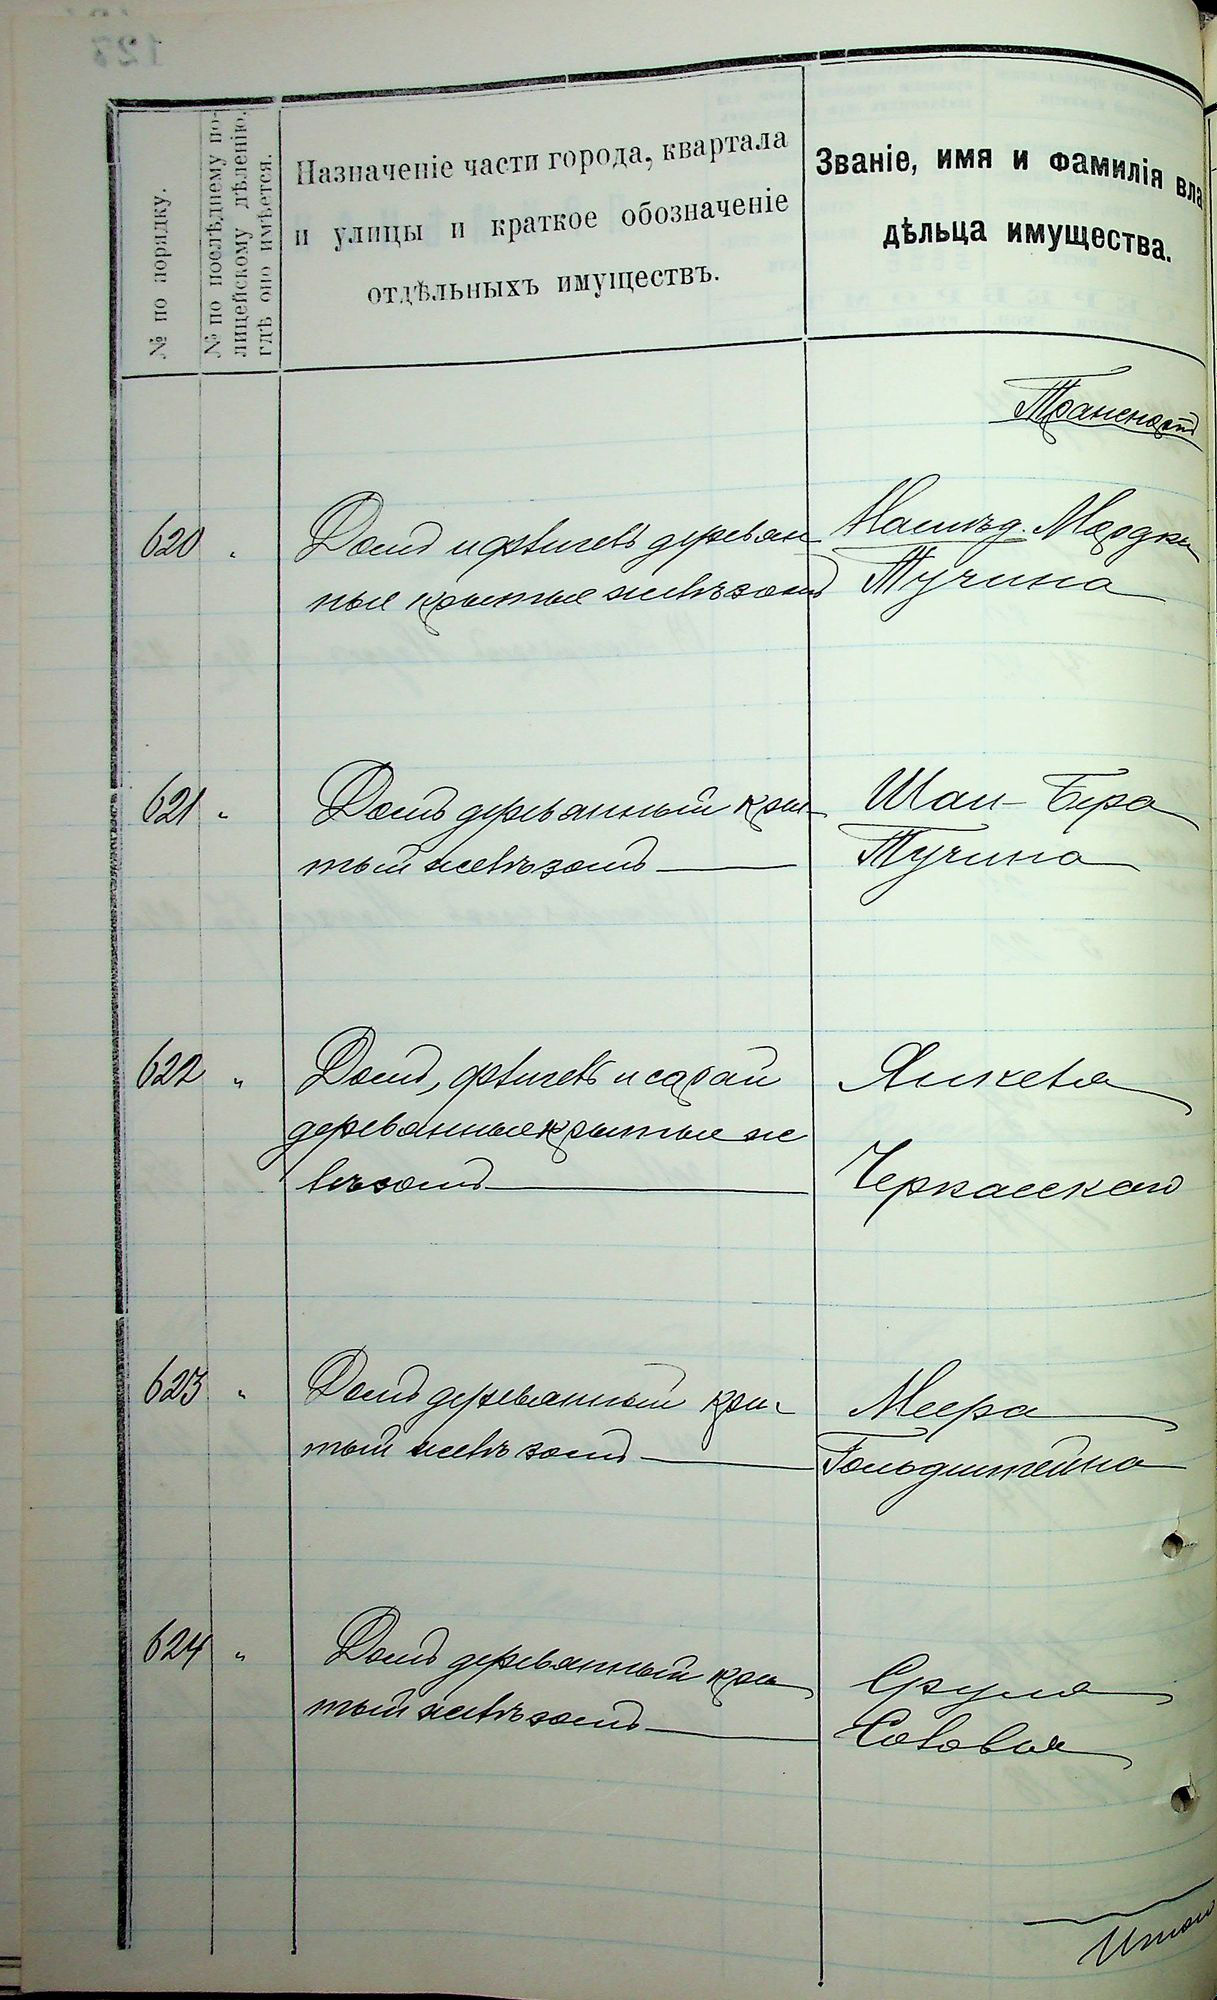 № по порядку.
№ по послѣднему по-
лицейскому дѣленію,
гдѣ оно имѣется.
Назначеніе части города, квартала
и улицы и краткое обозначеніе
отдѣльныхъ имуществъ.
Званіе, имя и фамилія вла
дѣльца имущества.
Транспортъ
620 " Домъ и флигель деревян Наслѣд. Мордки
ные крытые желѣзомъ Тучина
621 " Домъ деревянный кры- Шаи-Бера
тый желѣзомъ Тучина
622 " Домъ, флигель и сарай Янкеля
деревянные крытые же
лѣзомъ Черкасскаго
623 " Домъ деревянный кры- Меера
тый желѣзомъ Гольдштейна
624 " Домъ деревянный кры Сруля
тый желѣзомъ
Итого